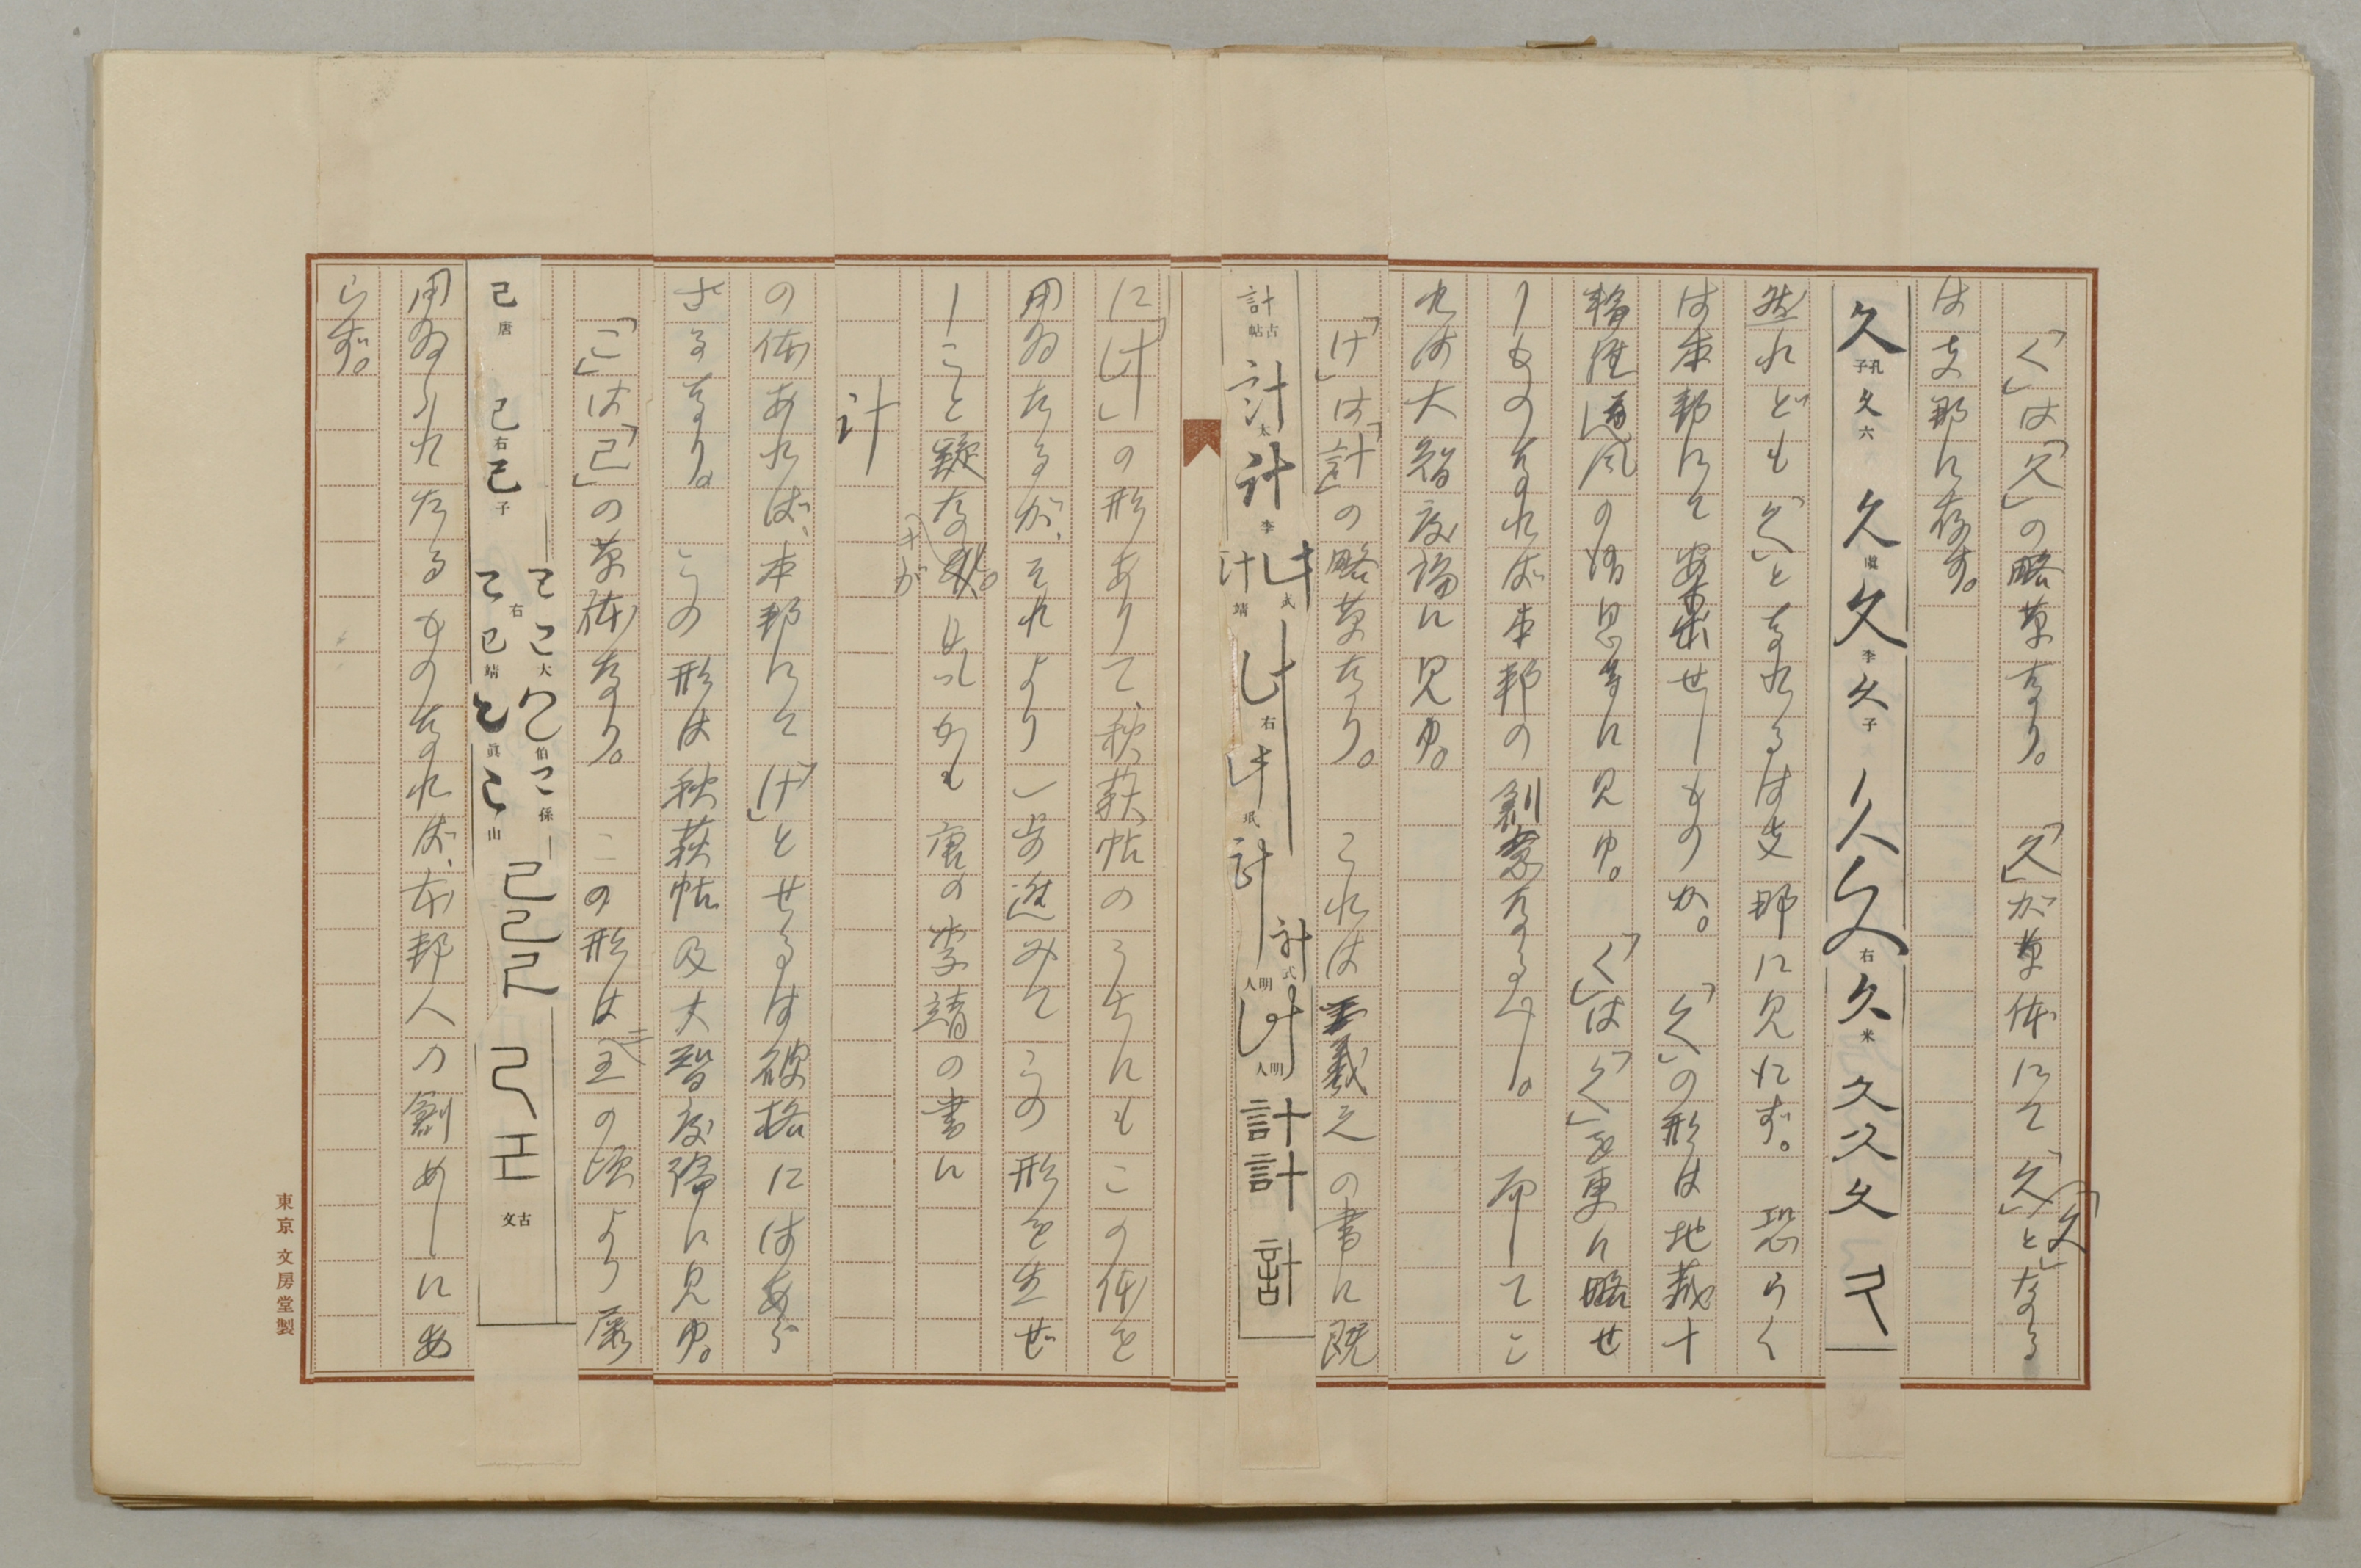 「く」は「久」の略草なり。　「久」が草体にて「久」となる
は支那に存す。
久 孔子 久 六 久 虞 久 李 久 子 久 久 右 久 米 久 久 久
然れども「く」となれるは支那に見ず。　恐らく
は本邦にて案出せしものか。　「く」の形は地蔵十
輪經、道風の
見ゆ。　「く」は「く」を更に略せ
しものなれば本邦の創意なるべし。　而してこ
れは大智度論に見ゆ。
「け」は「計」の略草なり。　これは王羲之の書に既
計 古帖 計 太 計 李 計 武 計 靖 計 右 計 珉 計 明人 計 式 計 明人 計 計
に「计」の形ありて、秋萩帖のうちにもこの体を
用ゐたるが、それより一歩進みてこの形を生ぜ
しこと疑なし。
唐の李靖の書に
計
の体あれば、本邦にて「け」とせるは破格にはあら
ざるなり。　この形は秋萩帖及大智度論に見ゆ。
「こ」は「己」の草体なり。　この形は
の頃より屡
己 唐 己 右 己 子 己 右 己 靖 己 大 己 眞 己 伯 己 山 己 係 己 己 己 古文
用ゐられたるものなれば、本邦人の創めしにあ
らず。
東京 文房堂製